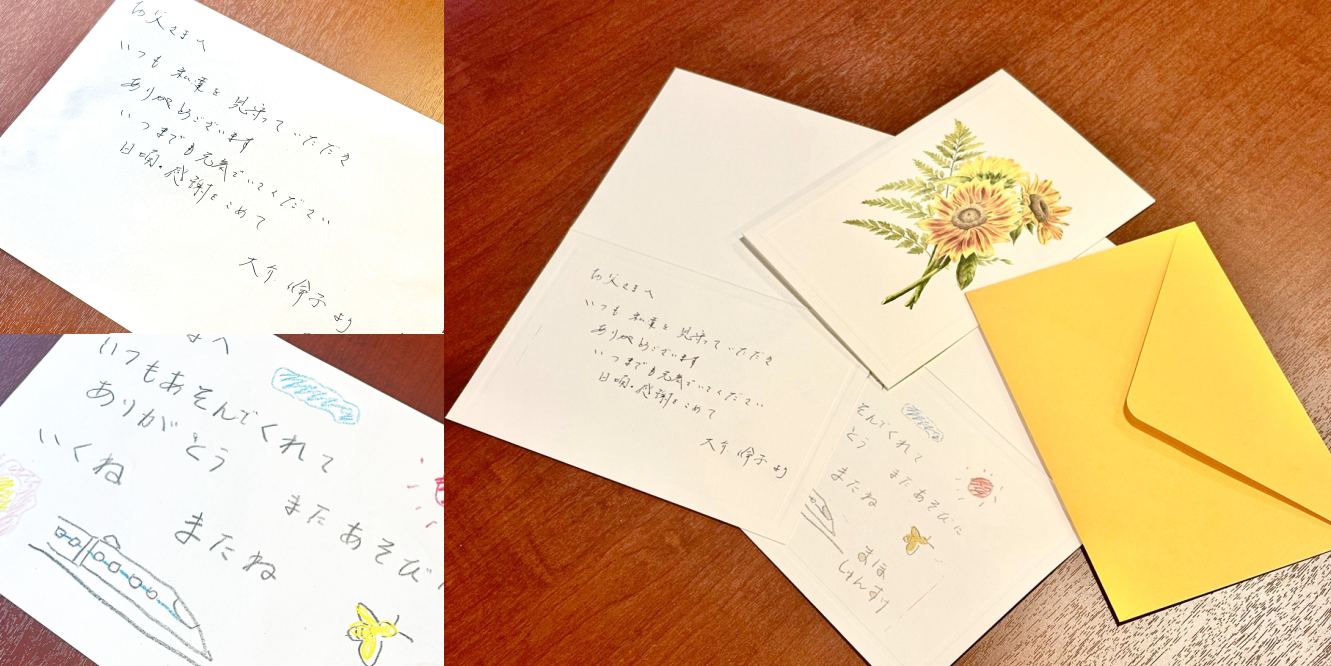 お父さまへ
いつも私達を見守っていただき
ありがとうございます
いつまでも元気でいてください
日頃の感謝をこめて
大介 倫子より
まへ
いつもあそんでくれて
ありがとう
またあそびに
いくね
またね
お父さまへ
いつも私達を見守っていただき
ありがとうございます
いつまでも元気でいてください
日頃の感謝をこめて
大介 倫子より
そんでくれて
とう
またあそびに
またね
まほ
しゅんすけ